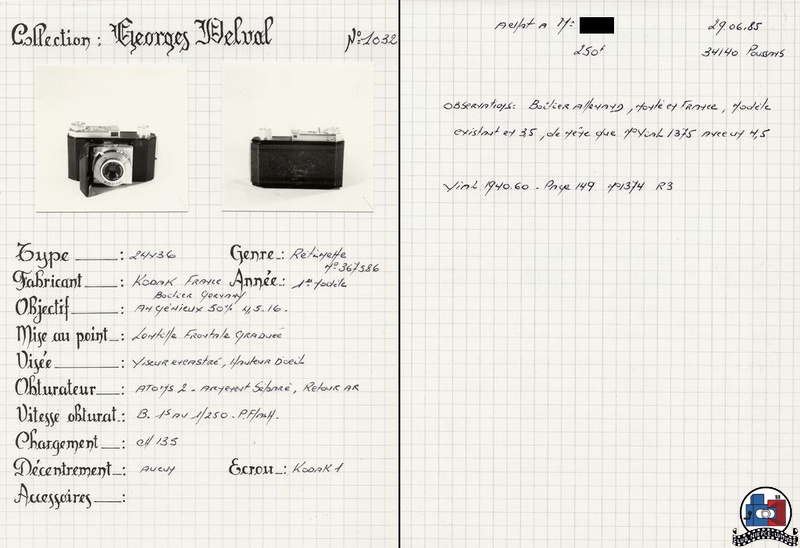 Collection : Georges Delval
N° 1032
Type : 24x36
Genre : Retinette
N° 367586
Fabricant : Kodak France
Année : 1er Modèle
Boîtier Germany
Objectif : Angénieux 50% 4,5-16.
Mise au point : Lentille Frontale Graduée
Visée : Viseur encastré, Hauteur D'oeil
Obturateur : Atos 2 - Armement Séparé, Retour AR
Vitesse obturat. : B. 1s au 1/250 - P.Flash.
Chargement : CH 135
Décentrement : Aucun
Ecrou : Kodak 1
Accessoires :
Achat a Mr
29.06.85
250F
34140 Poussan
Observations: Boîtier Allemand, monté en France, modèle
existant en 3,5, de même que N° Vial 1375 avec un 4,5
Vial 1940.60 - Page 149 N° 1374 R3